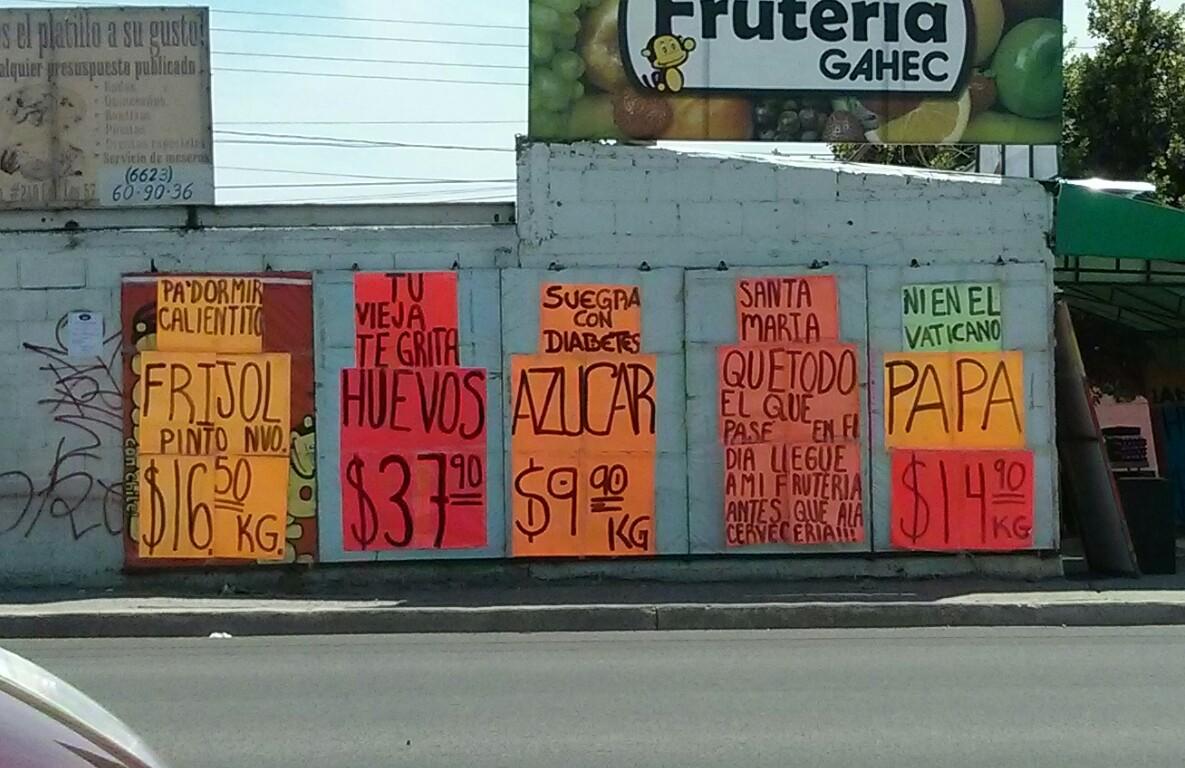 s el platillo a su gusto!
alquier presuspuesto publicado
Servicio de meseros
(6623)
60-90-36
Frutería
GAHEC
PA'DORMIR
CALIENTITO
FRIJOL
PINTO NVO.
$16.50
KG.
TU
VIEJA
TE GRITA
HUEVOS
$37.90
SUEGRA
CON
DIABETES
AZUCAR
$9.90
KG
SANTA
MARIA
QUE TODO
EL QUE
PASE EN EL
DIA LLEGUE
A MI FRUTERIA
ANTES QUE A LA
CERVECERIA!!!
NI EN EL
VATICANO
PAPA
$14.90
KG